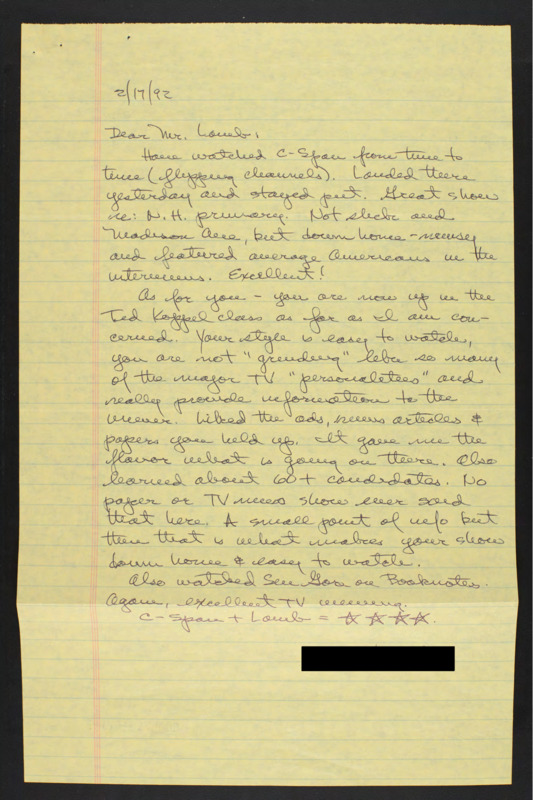 2/17/92
Dear Mr. Lamb,
Have watched C-Span from time to
time (flipping channels). Landed there
yesterday and stayed put. Great show
re: N.H. primary. Not slick and
Madison Ave, but down home - newsy
and featured average Americans in the
interviews. Excellent!
As for you - you are now up in the
Ted Koppel class as far as I am con-
cerned. Your style is easy to watch,
you are not "grinding" like so many
of the major TV "personalities" and
really provide information to the
viewer. Liked the ads, news articles &
papers you held up. It gave me the
flavor what is going on there. Also
learned about 60+ candidates. No
paper or TV news show ever said
that here. A small point of info but
then that is what makes your show
down home & easy to watch.
Also watched Sen Gore on Booknotes.
Again, excellent TV viewing.
C-Span + Lamb = ☆ ☆ ☆ ☆.